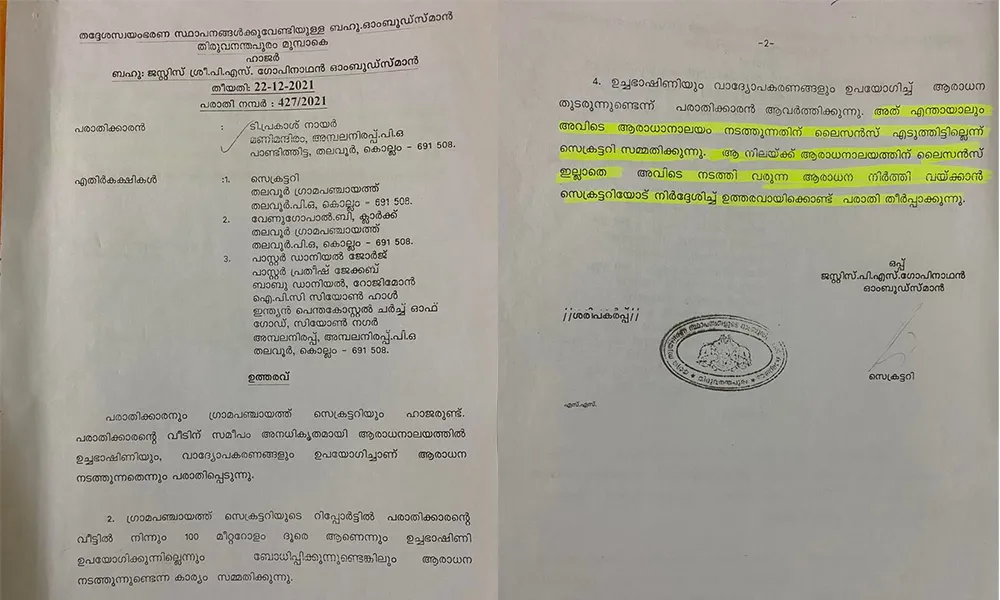 തദ്ദേശസ്വയംഭരണ സ്ഥാപനങ്ങൾക്കുവേണ്ടിയുള്ള ബഹു.ഓംബുഡ്സ്മാൻ
തിരുവനന്തപുരം മുമ്പാകെ
ഹാജർ
ബഹു: ജസ്റ്റിസ് ശ്രീ.പി.എസ്. ഗോപിനാഥൻ ഓംബുഡ്സ്മാൻ
തീയതി: 22-12-2021
പരാതി നമ്പർ : 427/2021
പരാതിക്കാരൻ : ടി.പ്രകാശ് നായർ
മണിമന്ദിരം, അമ്പലനിരപ്പ്.പി.ഒ
പാണ്ടിത്തിട്ട, തലവൂർ, കൊല്ലം - 691 508.
എതിർകക്ഷികൾ :1. സെക്രട്ടറി
തലവൂർ ഗ്രാമപഞ്ചായത്ത്
തലവൂർ.പി.ഒ, കൊല്ലം - 691 508.
2. വേണുഗോപാൽ.ബി, ക്ലാർക്ക്
തലവൂർ ഗ്രാമപഞ്ചായത്ത്
തലവൂർ.പി.ഒ, കൊല്ലം - 691 508.
3. പാസ്റ്റർ ഡാനിയൽ ജോർജ്
പാസ്റ്റർ പ്രതീഷ് ജേക്കബ്
ബാബു ഡാനിയൽ, റോജിമോൻ
ഐ.പി.സി സിയോൺ ഹാൾ
ഇന്ത്യൻ പെന്തകോസ്റ്റൽ ചർച്ച് ഓഫ്
ഗോഡ്, സിയോൺ നഗർ
അമ്പലനിരപ്പ്, അമ്പലനിരപ്പ്.പി.ഒ
തലവൂർ, കൊല്ലം - 691 508.
ഉത്തരവ്
പരാതിക്കാരനും ഗ്രാമപഞ്ചായത്ത് സെക്രട്ടറിയും ഹാജരുണ്ട്.
പരാതിക്കാരന്റെ വീടിന് സമീപം അനധികൃതമായി ആരാധനാലയത്തിൽ
ഉച്ചഭാഷിണിയും, വാദ്യോപകരണങ്ങളും ഉപയോഗിച്ചാണ് ആരാധന
നടത്തുന്നതെന്നും പരാതിപ്പെടുന്നു.
2. ഗ്രാമപഞ്ചായത്ത് സെക്രട്ടറിയുടെ റിപ്പോർട്ടിൽ പരാതിക്കാരന്റെ
വീട്ടിൽ നിന്നും 100 മീറ്ററോളം ദൂരെ ആണെന്നും ഉച്ചഭാഷിണി
ഉപയോഗിക്കുന്നില്ലെന്നും ബോധിപ്പിക്കുന്നുണ്ടെങ്കിലും ആരാധന
നടത്തുന്നുണ്ടെന്ന കാര്യം സമ്മതിക്കുന്നു.
-2-
4. ഉച്ചഭാഷിണിയും വാദ്യോപകരണങ്ങളും ഉപയോഗിച്ച് ആരാധന
തുടരുന്നുണ്ടെന്ന് പരാതിക്കാരൻ ആവർത്തിക്കുന്നു. അത് എന്തായാലും
അവിടെ ആരാധാനാലയം നടത്തുന്നതിന് ലൈസൻസ് എടുത്തിട്ടില്ലെന്ന്
സെക്രട്ടറി സമ്മതിക്കുന്നു. ആ നിലയ്ക്ക് ആരാധനാലയത്തിന് ലൈസൻസ്
ഇല്ലാതെ അവിടെ നടത്തി വരുന്ന ആരാധന നിർത്തി വയ്ക്കാൻ
സെക്രട്ടറിയോട് നിർദ്ദേശിച്ച് ഉത്തരവായിക്കൊണ്ട് പരാതി തീർപ്പാക്കുന്നു.
ഒപ്പ്
ജസ്റ്റിസ്.പി.എസ്.ഗോപിനാഥൻ
ഓംബുഡ്സ്മാൻ
//ശരിപകർപ്പ്//
തിരുവനന്തപുരം
സെക്രട്ടറി
എസ്.എസ്.